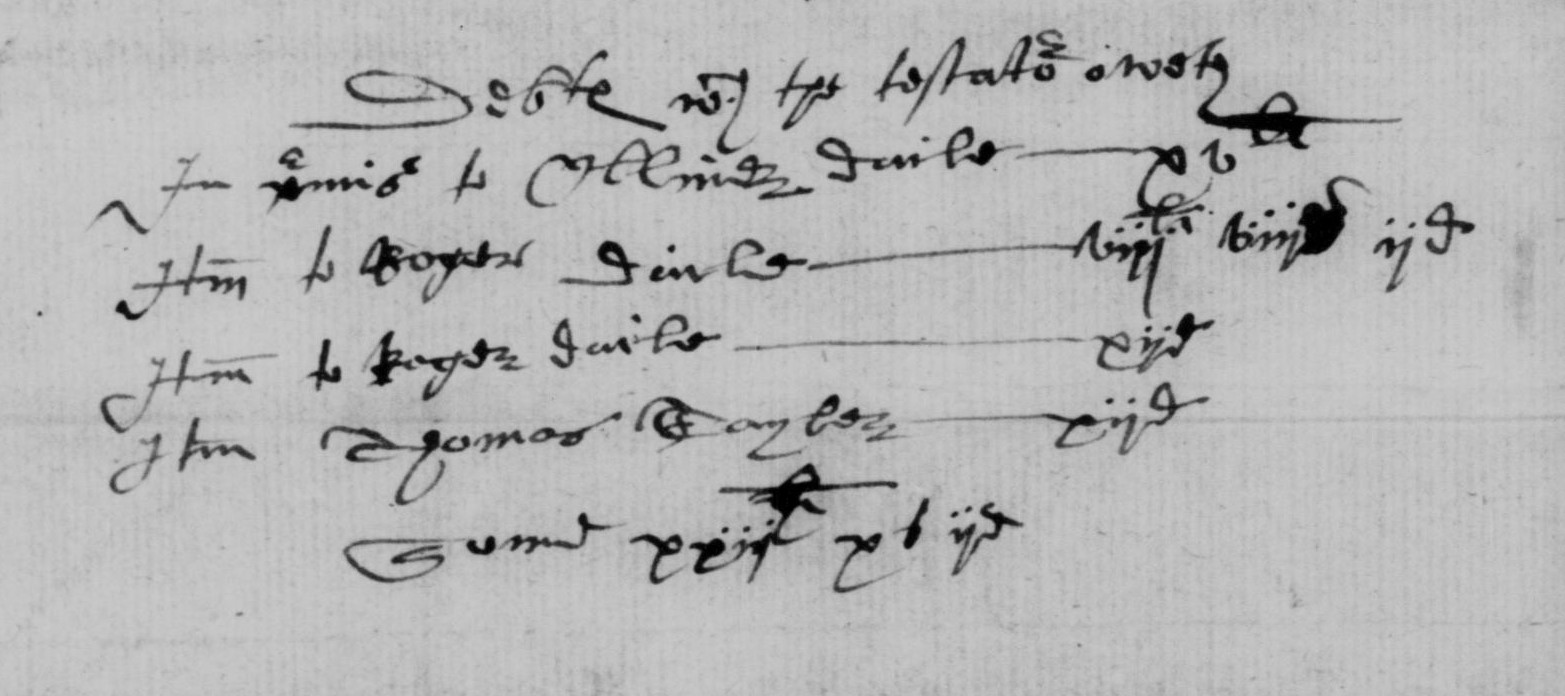 Debtes wch the testator oweth
In primis to Elliner daile xv li
Itm to Roger daile viij li viij s ij d
Itm to Roger daile xij d
Itm Thomas Tayler xij d
Somm xxiij li x s ij d